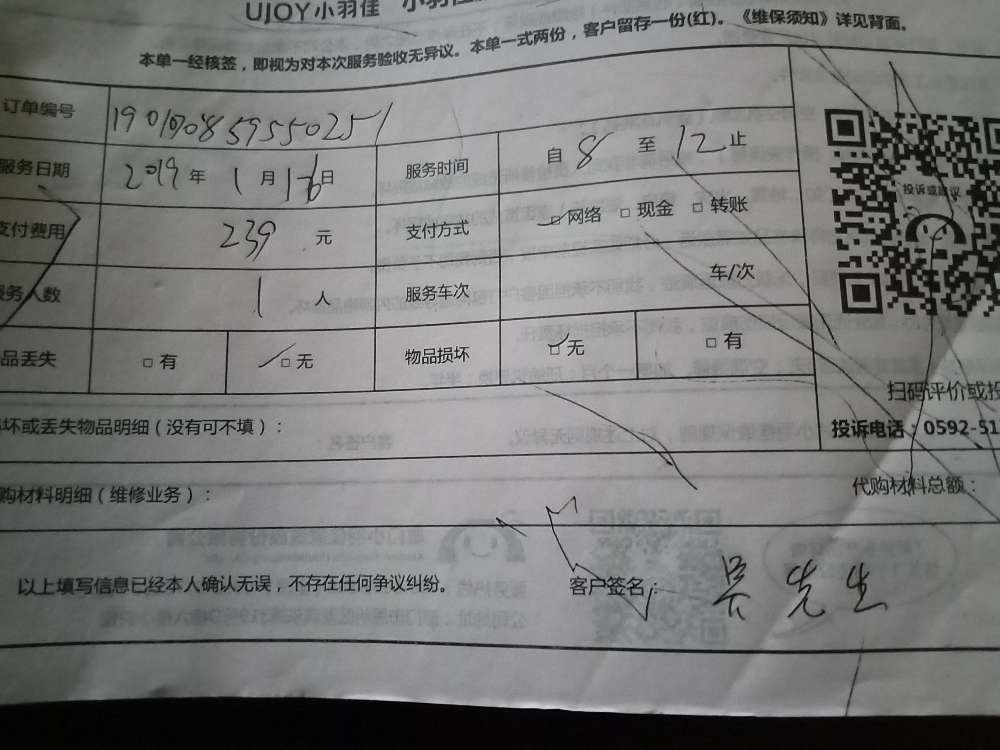 UJOY小羽佳 小羽佳
本单一经核签，即视为对本次服务验收无异议。本单一式两份，客户留存一份(红)。《维保须知》详见背面。
订单编号
服务日期 2019 年 1 月 16 日 服务时间 自 8 至 12 止
支付费用 239 元 支付方式 □ 网络 □ 现金 □ 转账
服务人数 1 人 服务车次 车/次
品丢失 □ 有 □ 无 物品损坏 □ 无 □ 有
投诉或建议
扫码评价或投
投诉电话：0592-51
坏或丢失物品明细（没有可不填）：
购材料明细（维修业务）： 代购材料总额：
以上填写信息已经本人确认无误，不存在任何争议纠纷。 客户签名： 吴先生